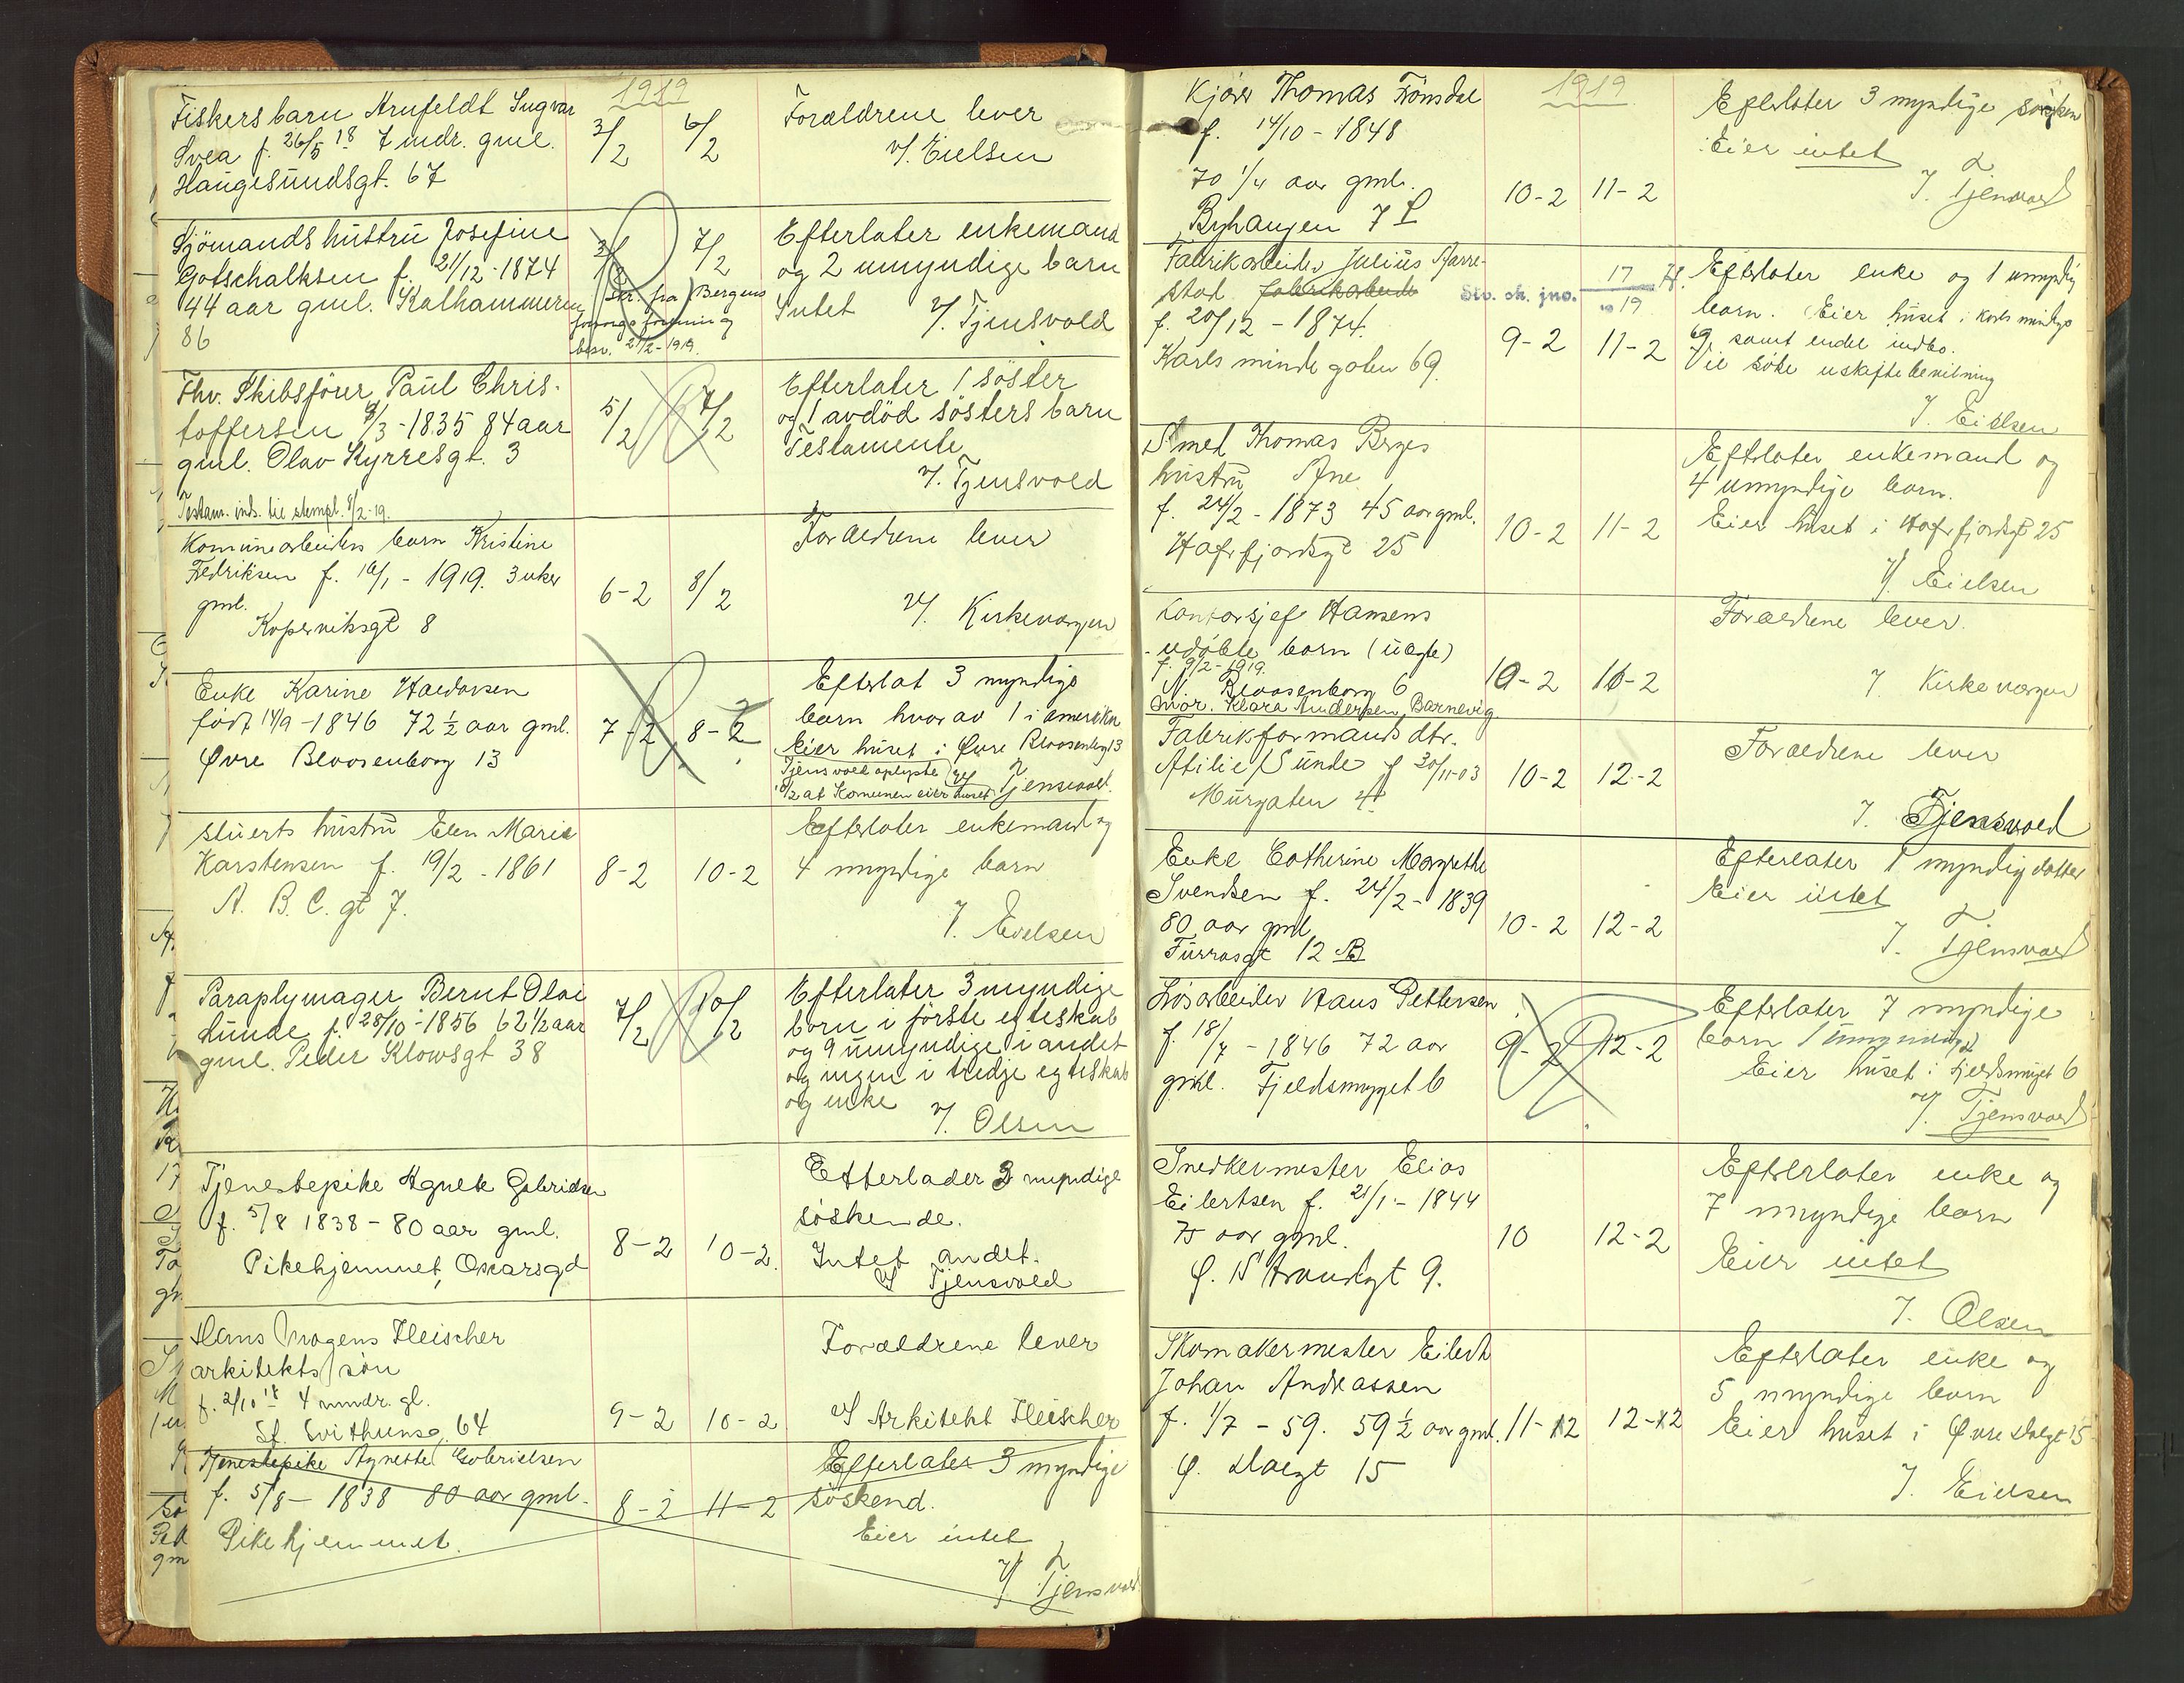 1919
Fiskers barn Arnfeldt Ingvar
Svea f. 26/5 18 7 mdr. gml.
Haugesundsgt. 67
3/2
6/2
Forældrene lever
v/. Eielsen
Sjömands hustru Josefine
Gotschalksen f. 21/12-1874
44 aar gml. Kalhammeren
86
3/2
7/2
Skr. fra Bergens
forsorgsforening
besv. 21/2-1919.
Efterlater enkemand
og 2 umyndige barn
Intet v/. Tjensvold
Fhv. Skibsförer Paul Chris-
toffersen 8/3-1835 84 aar
gml. Olav Kyrresgt. 3
Testam. inds. til stempl. 8/2-19.
5/2
7/2
Efterlater 1 söster
og 1 avdöd sösters barn
Testamente
v/. Tjensvold
Komunearbeiders barn Kristine
Fredriksen f. 16/1-1919. 3 uker
gml.
Koperviksgt 8
6-2
8/2
Foraeldrene lever
v/. Kirkevergen
Enke Karine Haldorsen
född 14/9-1846 72 1/2 aar gml.
Øvre Blaasenborg 13
7-2
8-2
Efterlat 3 myndige
barn hvor av 1 i amerika
Eier huset i Øvre Blaasenborg 13
Tjensvold oplyste
10/2 at Komunen eier huset
v/ Tjensvold.
Stuerts hustru Elen Marie
Karstensen f. 19/2-1861
A. B. C. gt 7.
8-2
10-2
Efterlater enkemand og
4 myndige barn
v/. Eielsen
Paraplymager Bernt Olai
Lunde f. 28/10-1856 62 1/2 aar
gml. Peder Klowsgt 38
7/2
10/2
Efterlater 3 myndige
born i förste egteskab
og 9 umyndige i andet
og ingen i tredje egteskab
og enke
v/. Olsen
Tjenestepike Agnete Gabrielsen
f. 5/8 1838 - 80 aar gml.
Pikehjemmet, Oscarsgd
8-2
10-2.
Etterlader 3 myndige
söskende.
Intet andet.
v/ Tjensvold
Hans Mogens Fleischer
arkitekts sön
f. 2/10 18 4 mndr. gl.
St. Svithunsg. 64
9-2
10-2
Forældrene lever
v/ Arkitekt Fleischer
Tjenestepike Agnethe Gabrielsen
f. 5/8-1838 80 aar gml.
Pikehjemmet.
8-2
11-2
Efterlater 3 myndige
söskend.
Eier intet
v/ Tjensvold
1919
Kjörer Thomas Frönsdal
f. 14/10-1848
70 1/4 aar gml.
Byhaugen 7 L
10-2
11-2
Efterlater 3 myndige söskend
Eier intet
v/ Tjensvold
Fabrikarbeider Julius Harre-
stad fabrikarbeider
f. 20/12-1874.
Karls minde gaten 69.
9-2
11-2
Stv. sk. jno. 17/1919
Efterlater enke og 1 umyndig
barn. Eier huset i Karls mindegt
69 samt endel indbo.
Vil söke uskiftebevilning
v/. Eielsen
Smed Thomas Berges
hustru Ane
f. 24/2-1873 45 aar gml.
Hafrfjordsgt 25
10-2
11-2
Efterlater enkemand og
4 umyndige barn.
Eier huset i Hafrfjordsgt 25
v/ Eielsen
Kontorsjef Hansens
udöbte barn (uægte)
f. 9/2-1919.
N. Blaasenborg 6
Mor. Klara Andersen, Barnevig.
10-2
11-2
Foraeldrene lever.
v/ Kirkevergen
Fabrikformands dtr.
Atilie Sunde f 30/11-03
Murgaten 4
10-2
12-2
Foraeldrene lever
v/. Tjensvold
Enke Cathrine Margrethe
Svendsen f. 24/2-1839
80 aar gml
Furrasgt 12 B
10-2
12-2
Efterlater 1 myndig datter
Eier intet
v/. Tjensvold
Lösarbeider Hans Pettersen
f. 18/7-1846 72 aar
gml. Fjeldsmuget 6
9-2
12-2
Efterlater 7 myndige
born 1 umyndig
Eier huset i Fjeldsmuget 6
v/. Tjensvold
Snedkermester Elias
Eilertsen f. 21/1-1844
75 aar gml.
Ø. Strandgt 9.
10
12-2
Efterlater enke og
7 myndige barn
Eier intet
v/. Olsen
Skomakermester Eilert
Johan Andreassen
f. 1/7-59. 59 1/2 aar gml.
Ø. Dalgt 15
11-2
12-2
Efterlater enke og
5 myndige barn
Eier huset i Øvre Dalgt 15
v/. Eielsen